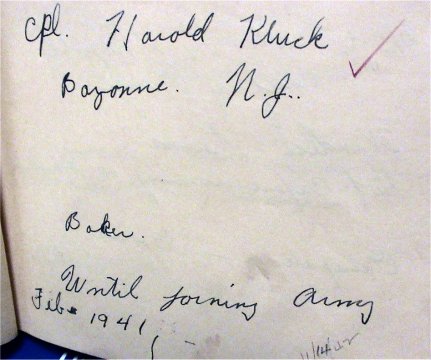 Cpl. Harold Kluck
Bayonne. N.J..
Baker.
Until joining Army
Feb. 1941
11/14/42